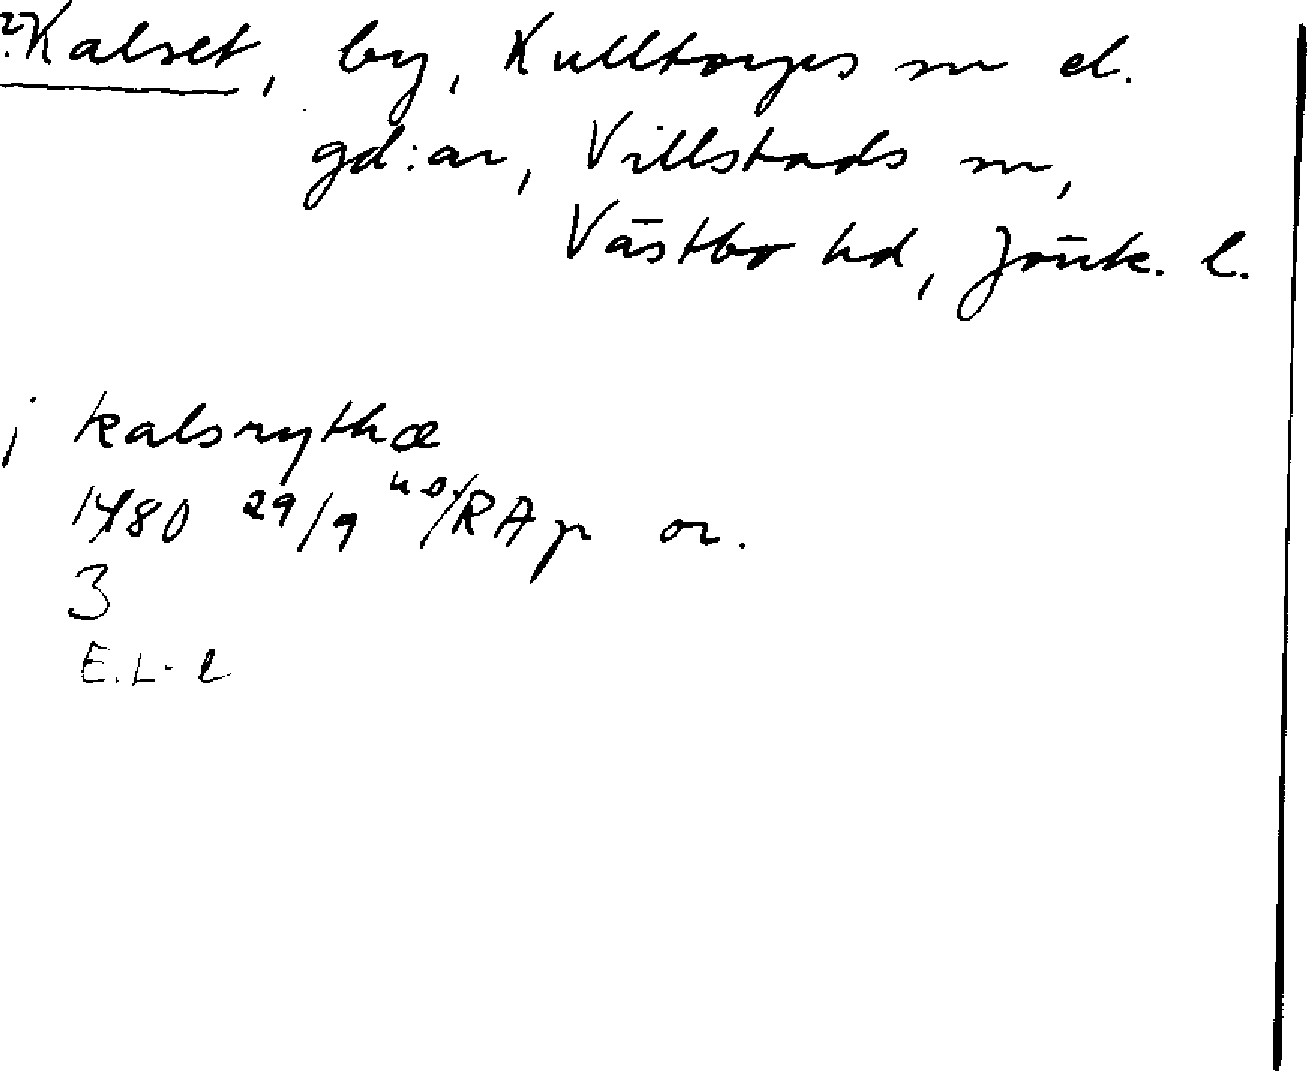 ?Kalset, by, Kulltorps sn el.
gd:ar, Villstads sn,
Västbo hd, Jönk. l.
j kalsrythæ
1480 29/9 u o/RAp or.
3
E.L-l